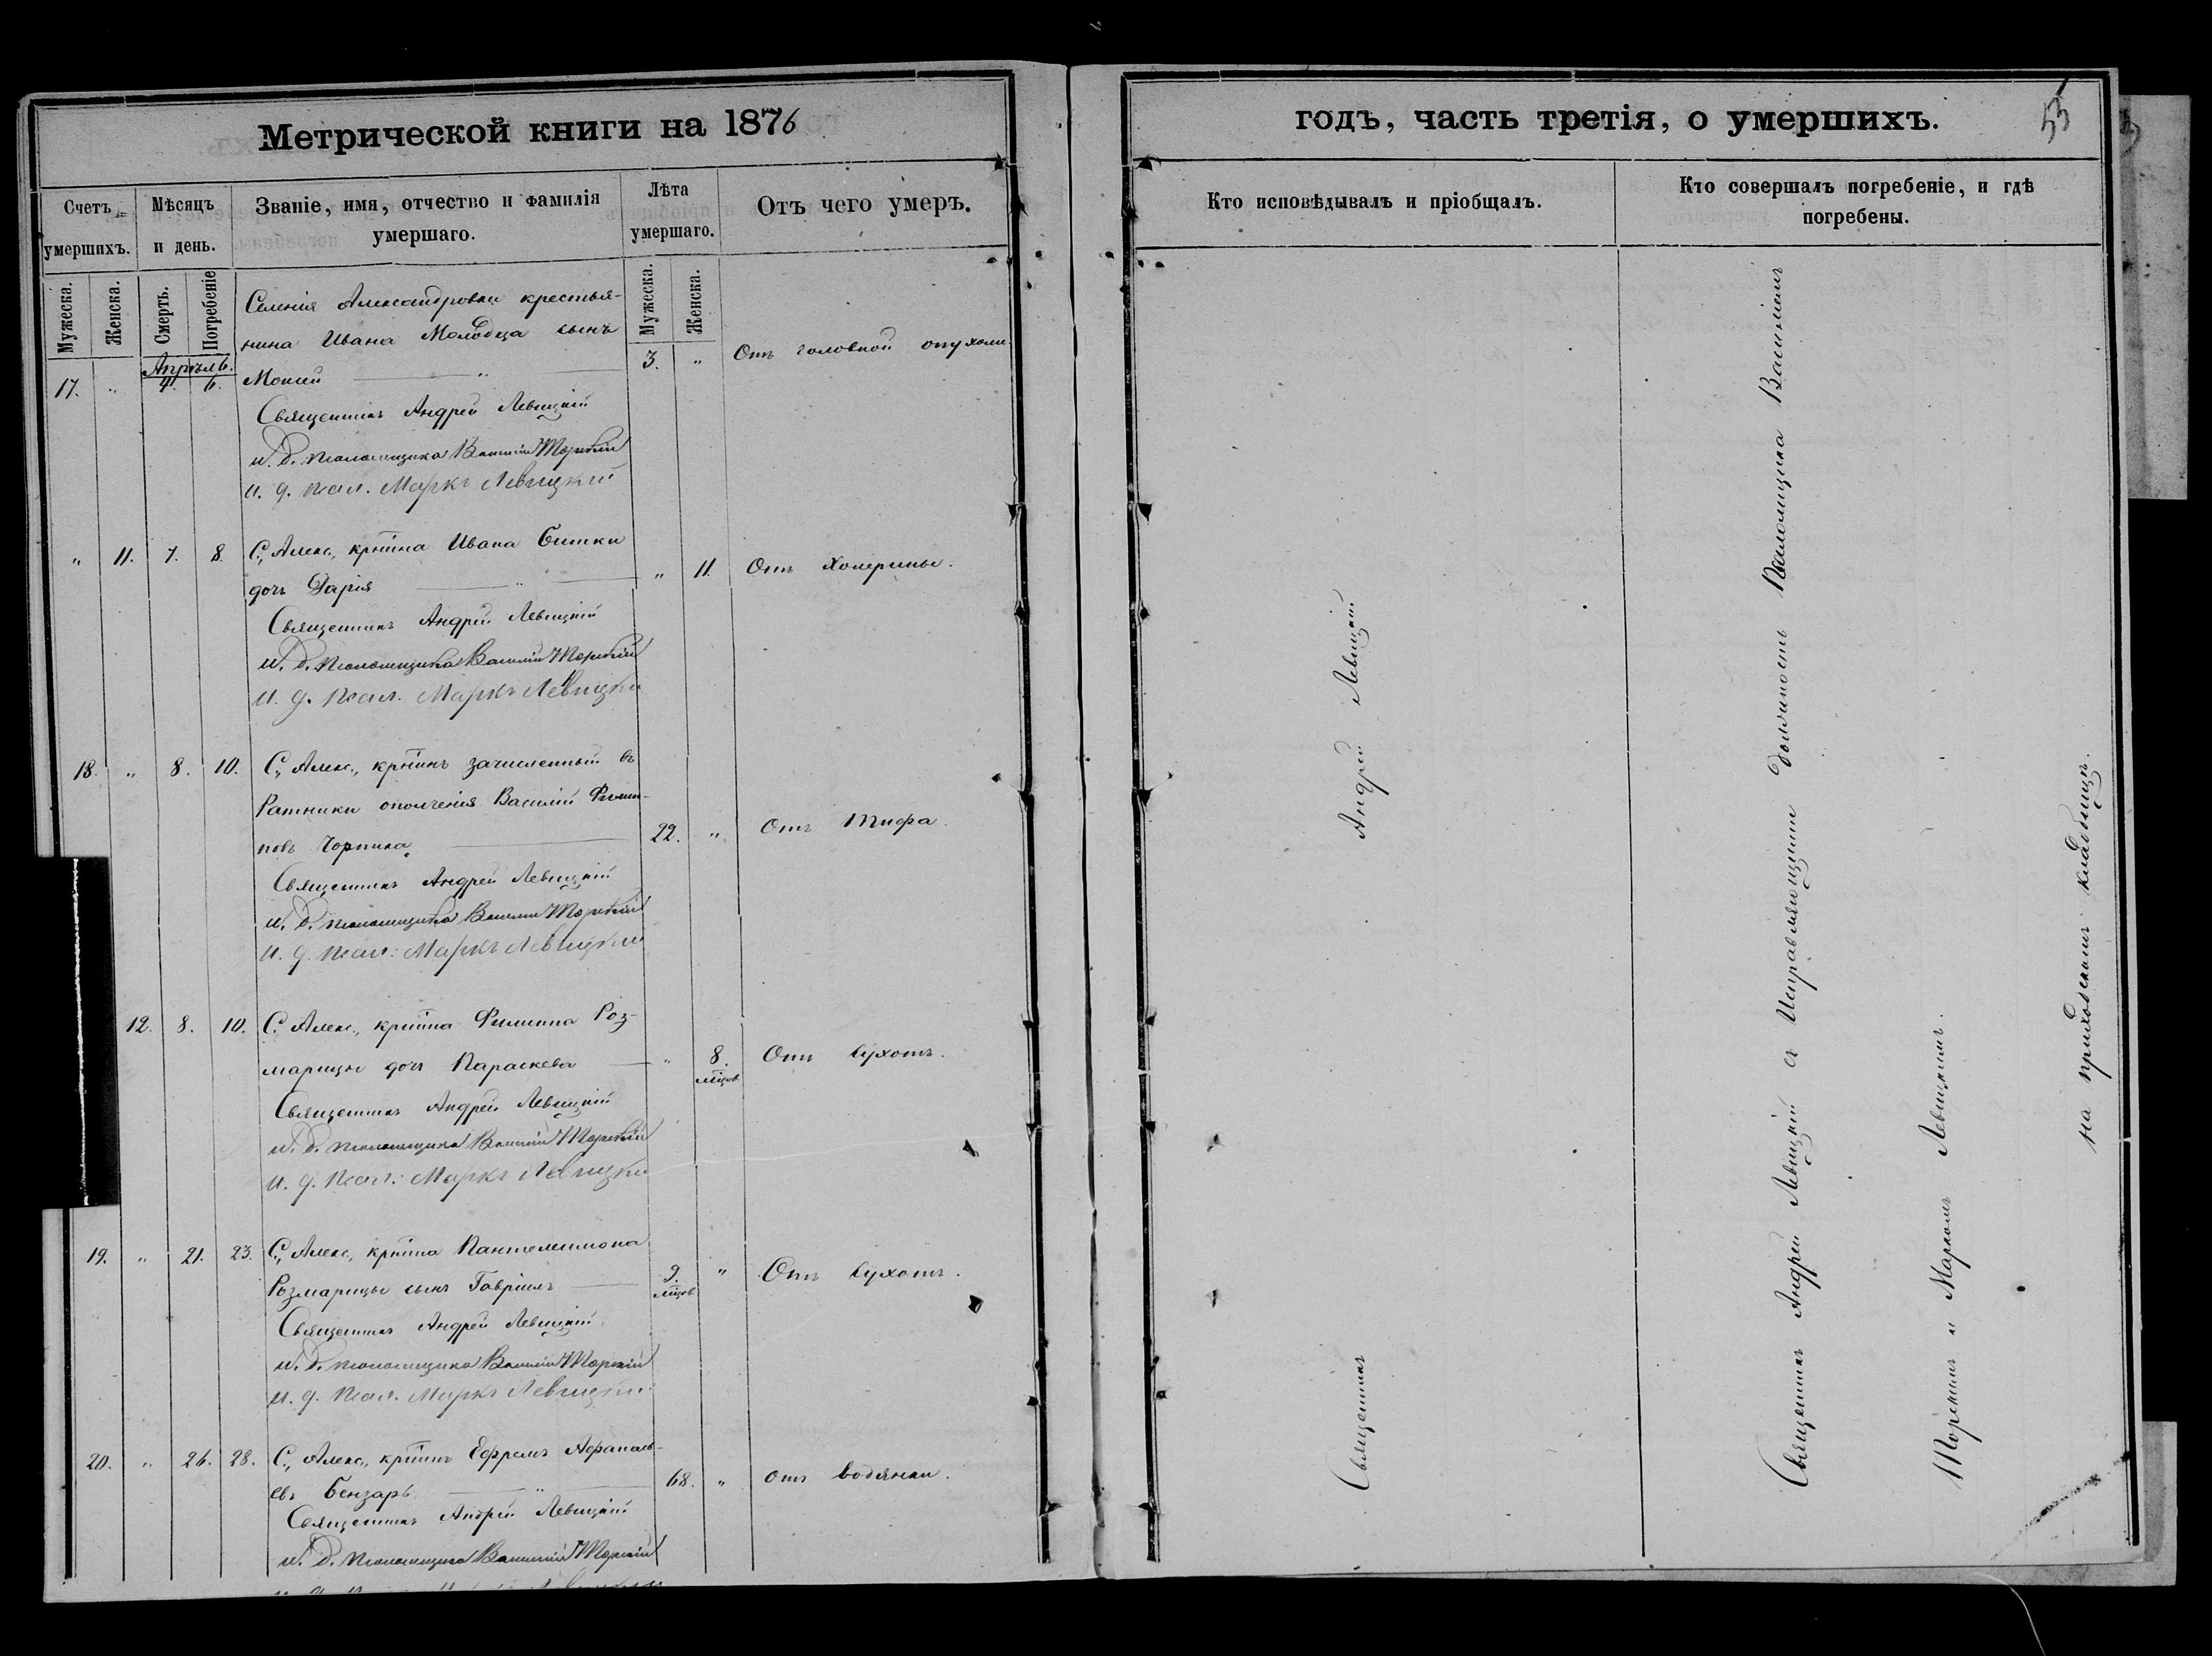 Метрической книги на 1876
Счетъ умершихъ.
Мѣсяцъ и день.
Званіе, имя, отчество и фамилія умершаго.
Лѣта умершаго.
Отъ чего умеръ.
Мужеска.
Женска.
Смерть.
Погребеніе
Мужеска.
Женска.
Апрѣль
Селенія Александровки крестья-
нина Ивана Молодца сынъ
17. " 4. 6. Моисей " 3. " Отъ головной опухоли
Священникъ Андрей Левицкій
и. д. псаломщика Василій Торскій
и. д. псал. Маркъ Левицкій
" 11. 7. 8. С. Алекс. кртіна Ивана Битки
дочь Дарія " " 11. Отъ холерины.
Священникъ Андрей Левицкій
и. д. псаломщика Василій Торскій
и. д. псал. Маркъ Левицкій
18. " 8. 10. С. Алекс. кртінъ зачисленный въ
Ратники ополченія Василій Филип-
повъ 22. " Отъ тифа.
Священникъ Андрей Левицкій
и. д. псаломщика Василій Торскій
и. д. псал: Маркъ Левицкій
12. 8. 10. С. Алекс. кртіна Филиппа Роз-
марицы дочь Параскева " 8. мцовъ Отъ сухотъ.
Священникъ Андрей Левицкій
и. д. псаломщика Василій Торскій
и. д. псал: Маркъ Левицкій
19. " 21. 23. С. Алекс. кртіна Пантелеимона
Розмарицы сынъ Гавріилъ 9. мцовъ " Отъ сухотъ.
Священникъ Андрей Левицкій
и. д. псаломщика Василій Торскій
и. д. псал. Маркъ Левицкій
20. " 26. 28. С. Алекс. кртінъ Ефремъ Афанась-
евъ Бензарь " 68. " отъ водянки.
Священникъ Андрей Левицкій
и. д. псаломщика Василій Торскій
годъ, часть третія, о умершихъ.
53
Кто исповѣдывалъ и пріобщалъ.
Кто совершалъ погребеніе, и гдѣ погребены.
Священникъ Андрей Левицкій
Священникъ Андрей Левицкій съ Исправляющими должность Псаломщика Василіемъ
Торскимъ и Маркомъ Левицкимъ.
на приходскомъ кладбищѣ.